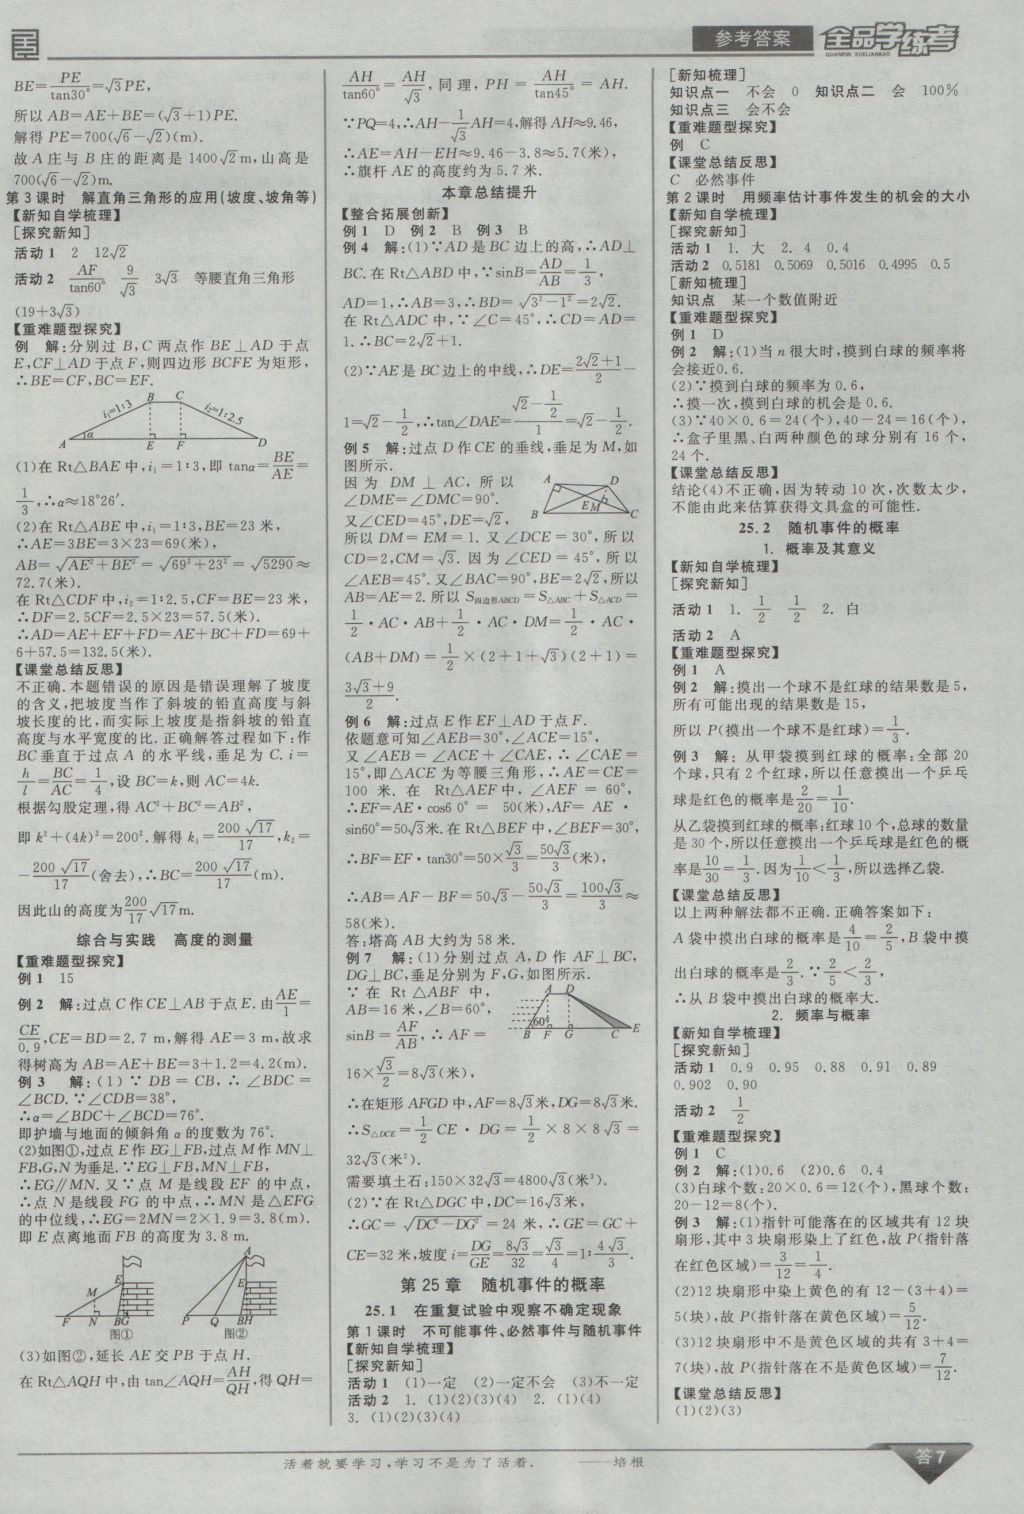 参考答案
全品学练考
QUANPIN XUELIANKAO
BE=PE/tan30°=√3PE,
所以 AB=AE+BE=(√3+1)PE.
解得 PE=700(√6-√2)(m).
故 A 庄与 B 庄的距离是 1400√2 m,山高是
700(√6-√2)m.
第 3 课时 解直角三角形的应用(坡度、坡角等)
【新知自学梳理】
[探究新知]
活动 1 2 12√2
活动 2 AF/tan60° 9/√3 3√3 等腰直角三角形
(19+3√3)
【重难题型探究】
例 解:分别过 B,C 两点作 BE⊥AD 于点
E,CF⊥AD 于点 F,则四边形 BCFE 为矩形,
∴BE=CF,BC=EF.
B C
i₁=1:3 i₂=1:2.5
A α E F D
(1)在 Rt△BAE 中,i₁=1:3,即 tanα=BE/AE=
1/3,∴α≈18°26′.
(2)在 Rt△ABE 中,i₁=1:3,BE=23 米,
∴AE=3BE=3×23=69(米),
AB=√(AE²+BE²)=√(69²+23²)=√5290≈
72.7(米).
在 Rt△CDF 中,i₂=1:2.5,CF=BE=23 米,
∴DF=2.5CF=2.5×23=57.5(米).
∴AD=AE+EF+FD=AE+BC+FD=69+
6+57.5=132.5(米).
【课堂总结反思】
不正确.本题错误的原因是错误理解了坡度
的含义,把坡度当作了斜坡的铅直高度与斜
坡长度的比,而实际上坡度是指斜坡的铅直
高度与水平宽度的比.正确解答过程如下:作
BC 垂直于过点 A 的水平线,垂足为 C. i=
h/l=BC/AC=1/4,设 BC=k,则 AC=4k.
根据勾股定理,得 AC²+BC²=AB²,
即 k²+(4k)²=200².解得 k₁=200√17/17,k₂=
-200√17/17(舍去),∴BC=200√17/17(m).
因此山的高度为200/17√17m.
综合与实践 高度的测量
【重难题型探究】
例 1 15
例 2 解:过点 C 作 CE⊥AB 于点 E.由AE/1=
CE/0.9,CE=BD=2.7 m,解得 AE=3 m,故求
得树高为 AB=AE+BE=3+1.2=4.2(m).
例 3 解:(1)∵DB=CB,∴∠BDC=
∠BCD.∵∠CDB=38°,
∴α=∠BDC+∠BCD=76°.
即护墙与地面的倾斜角 α 的度数为 76°.
(2)如图①,过点 E 作 EG⊥FB,过点 M 作 MN⊥
FB,G,N 为垂足.∵EG⊥FB,MN⊥FB,
∴EG∥MN.又∵点 M 是线段 EF 的中点,
∴点 N 是线段 FG 的中点,∴MN 是△EFG
的中位线,∴EG=2MN=2×1.9=3.8(m).
即 E 点离地面 FB 的高度为 3.8 m.
E M F N B G
图①
A E P Q B H
图②
(3)如图②,延长 AE 交 PB 于点 H.
在 Rt△AQH 中,由 tan∠AQH=AH/QH,得 QH=
AH/tan60°=AH/√3,同理,PH=AH/tan45°=AH.
∵PQ=4,∴AH-1/√3AH=4,解得 AH≈9.46,
∴AE=AH-EH≈9.46-3.8≈5.7(米),
∴旗杆 AE 的高度约为 5.7 米.
本章总结提升
【整合拓展创新】
例 1 D 例 2 B 例 3 B
例 4 解:(1)∵AD 是 BC 边上的高,∴AD⊥
BC.在 Rt△ABD 中,∵sinB=AD/AB=1/3,
AD=1,∴AB=3,∴BD=√(3²-1²)=2√2.
在 Rt△ADC 中,∵∠C=45°,∴CD=AD=
1.∴BC=2√2+1.
(2)∵AE 是 BC 边上的中线,∴DE=(2√2+1)/2-
1=√2-1/2,∴tan∠DAE=(√2-1/2)/1=√2-1/2.
例 5 解:过点 D 作 CE 的垂线,垂足为 M,如
图所示.
因为 DM⊥AC,所以
∠DME=∠DMC=90°.
又∠CED=45°,DE=√2,
A D E M B C
所以 DM=EM=1.又∠DCE=30°,所以
CD=2,CM=√3.因为∠CED=45°,所以
∠AEB=45°.又∠BAC=90°,BE=2√2,所以
AB=AE=2.所以 S四边形ABCD=S△ABC+S△ACD=
1/2·AC·AB+1/2·AC·DM=1/2·AC·
(AB+DM)=1/2×(2+1+√3)(2+1)=
(3√3+9)/2.
例 6 解:过点 E 作 EF⊥AD 于点 F.
依题意可知∠AEB=30°,∠ACE=15°,
又∠AEB=∠ACE+∠CAE,∴∠CAE=
15°,即△ACE 为等腰三角形,∴AE=CE=
100 米.在 Rt△AEF 中,∠AEF=60°,
∴EF=AE·cos60°=50(米),AF=AE·
sin60°=50√3米.在 Rt△BEF 中,∠BEF=30°,
∴BF=EF·tan30°=50×√3/3=50√3/3(米),
∴AB=AF-BF=50√3-50√3/3=100√3/3≈
58(米).
答:塔高 AB 大约为 58 米.
例 7 解:(1)分别过点 A,D 作 AF⊥BC,
DG⊥BC,垂足分别为 F,G,如图所示.
∵在 Rt△ABF 中,
AB=16 米,∠B=60°,
sinB=AF/AB,∴AF=
A D 60° B F G C E
16×√3/2=8√3(米),
∴在矩形 AFGD 中,AF=8√3米,DG=8√3米.
∴S△DCE=1/2CE·DG=1/2×8×8√3=
32√3(米²).
需要填土石:150×32√3=4800√3(米³).
(2)∵在 Rt△DGC 中,DC=16√3米,
∴GC=√(DC²-DG²)=24 米,∴GE=GC+
CE=32 米,坡度 i=DG/GE=8√3/32=√3/4=1:4√3/3.
第 25 章 随机事件的概率
25.1 在重复试验中观察不确定现象
第 1 课时 不可能事件、必然事件与随机事件
【新知自学梳理】
[探究新知]
活动 1 (1)一定 (2)一定不会 (3)不一定
活动 2 1.(1)(2)(3)(4) 2.(1)(4)
3.(1)(2)(3)(4)
[新知梳理]
知识点一 不会 0 知识点二 会 100%
知识点三 会不会
【重难题型探究】
例 C
【课堂总结反思】
C 必然事件
第 2 课时 用频率估计事件发生的机会的大小
【新知自学梳理】
[探究新知]
活动 1 1.大 2.4 0.4
活动 2 0.5181 0.5069 0.5016 0.4995 0.5
[新知梳理]
知识点 某一个数值附近
【重难题型探究】
例 1 D
例 2 解:(1)当 n 很大时,摸到白球的频率将
会接近0.6.
(2)∵摸到白球的频率为 0.6,
∴摸一次,摸到白球的机会是 0.6.
(3)∵40×0.6=24(个),40-24=16(个),
∴盒子里黑、白两种颜色的球分别有 16 个,
24 个.
【课堂总结反思】
结论(4)不正确,因为转动 10 次,次数太少,
不能由此来估算获得文具盒的可能性.
25.2 随机事件的概率
1. 概率及其意义
【新知自学梳理】
[探究新知]
活动 1 1. 1/2 1/2 2.白
活动 2 A
【重难题型探究】
例 1 A
例 2 解:摸出一个球不是红球的结果数是 5,
所有可能出现的结果数是 15,
所以 P(摸出一个球不是红球)=1/3.
例 3 解:从甲袋摸到红球的概率:全部 20
个球,只有 2 个红球,所以任意摸出一个乒乓
球是红色的概率是2/20=1/10.
从乙袋摸到红球的概率:红球 10 个,总球的数量
是 30 个,所以任意摸出一个乒乓球是红色的概
率是10/30=1/3.因为1/10<1/3,所以选择乙袋.
【课堂总结反思】
以上两种解法都不正确.正确答案如下:
A 袋中摸出白球的概率是4/10=2/5,B 袋中摸
出白球的概率是2/3.∵2/5<2/3,
∴从 B 袋中摸出白球的概率大.
2. 频率与概率
【新知自学梳理】
[探究新知]
活动 1 0.9 0.95 0.88 0.91 0.89
0.902 0.90
活动 2 1/2
【重难题型探究】
例 1 C
例 2 解:(1)0.6 (2)0.6 0.4
(3)白球个数:20×0.6=12(个),黑球个数:
20-12=8(个).
例 3 解:(1)指针可能落在的区域共有 12 块
扇形,其中 3 块扇形染上了红色,故 P(指针落
在红色区域)=3/12=1/4.
(2)12 块扇形中染上黄色的有 12-(3+4)=
5(块),故 P(指针落在黄色区域)=5/12.
(3)12 块扇形中不是黄色区域的共有 3+4=
7(块),故 P(指针落在不是黄色区域)=7/12.
【课堂总结反思】
(1)(2)(3)
活着就要学习,学习不是为了活着. ——培根
答 7